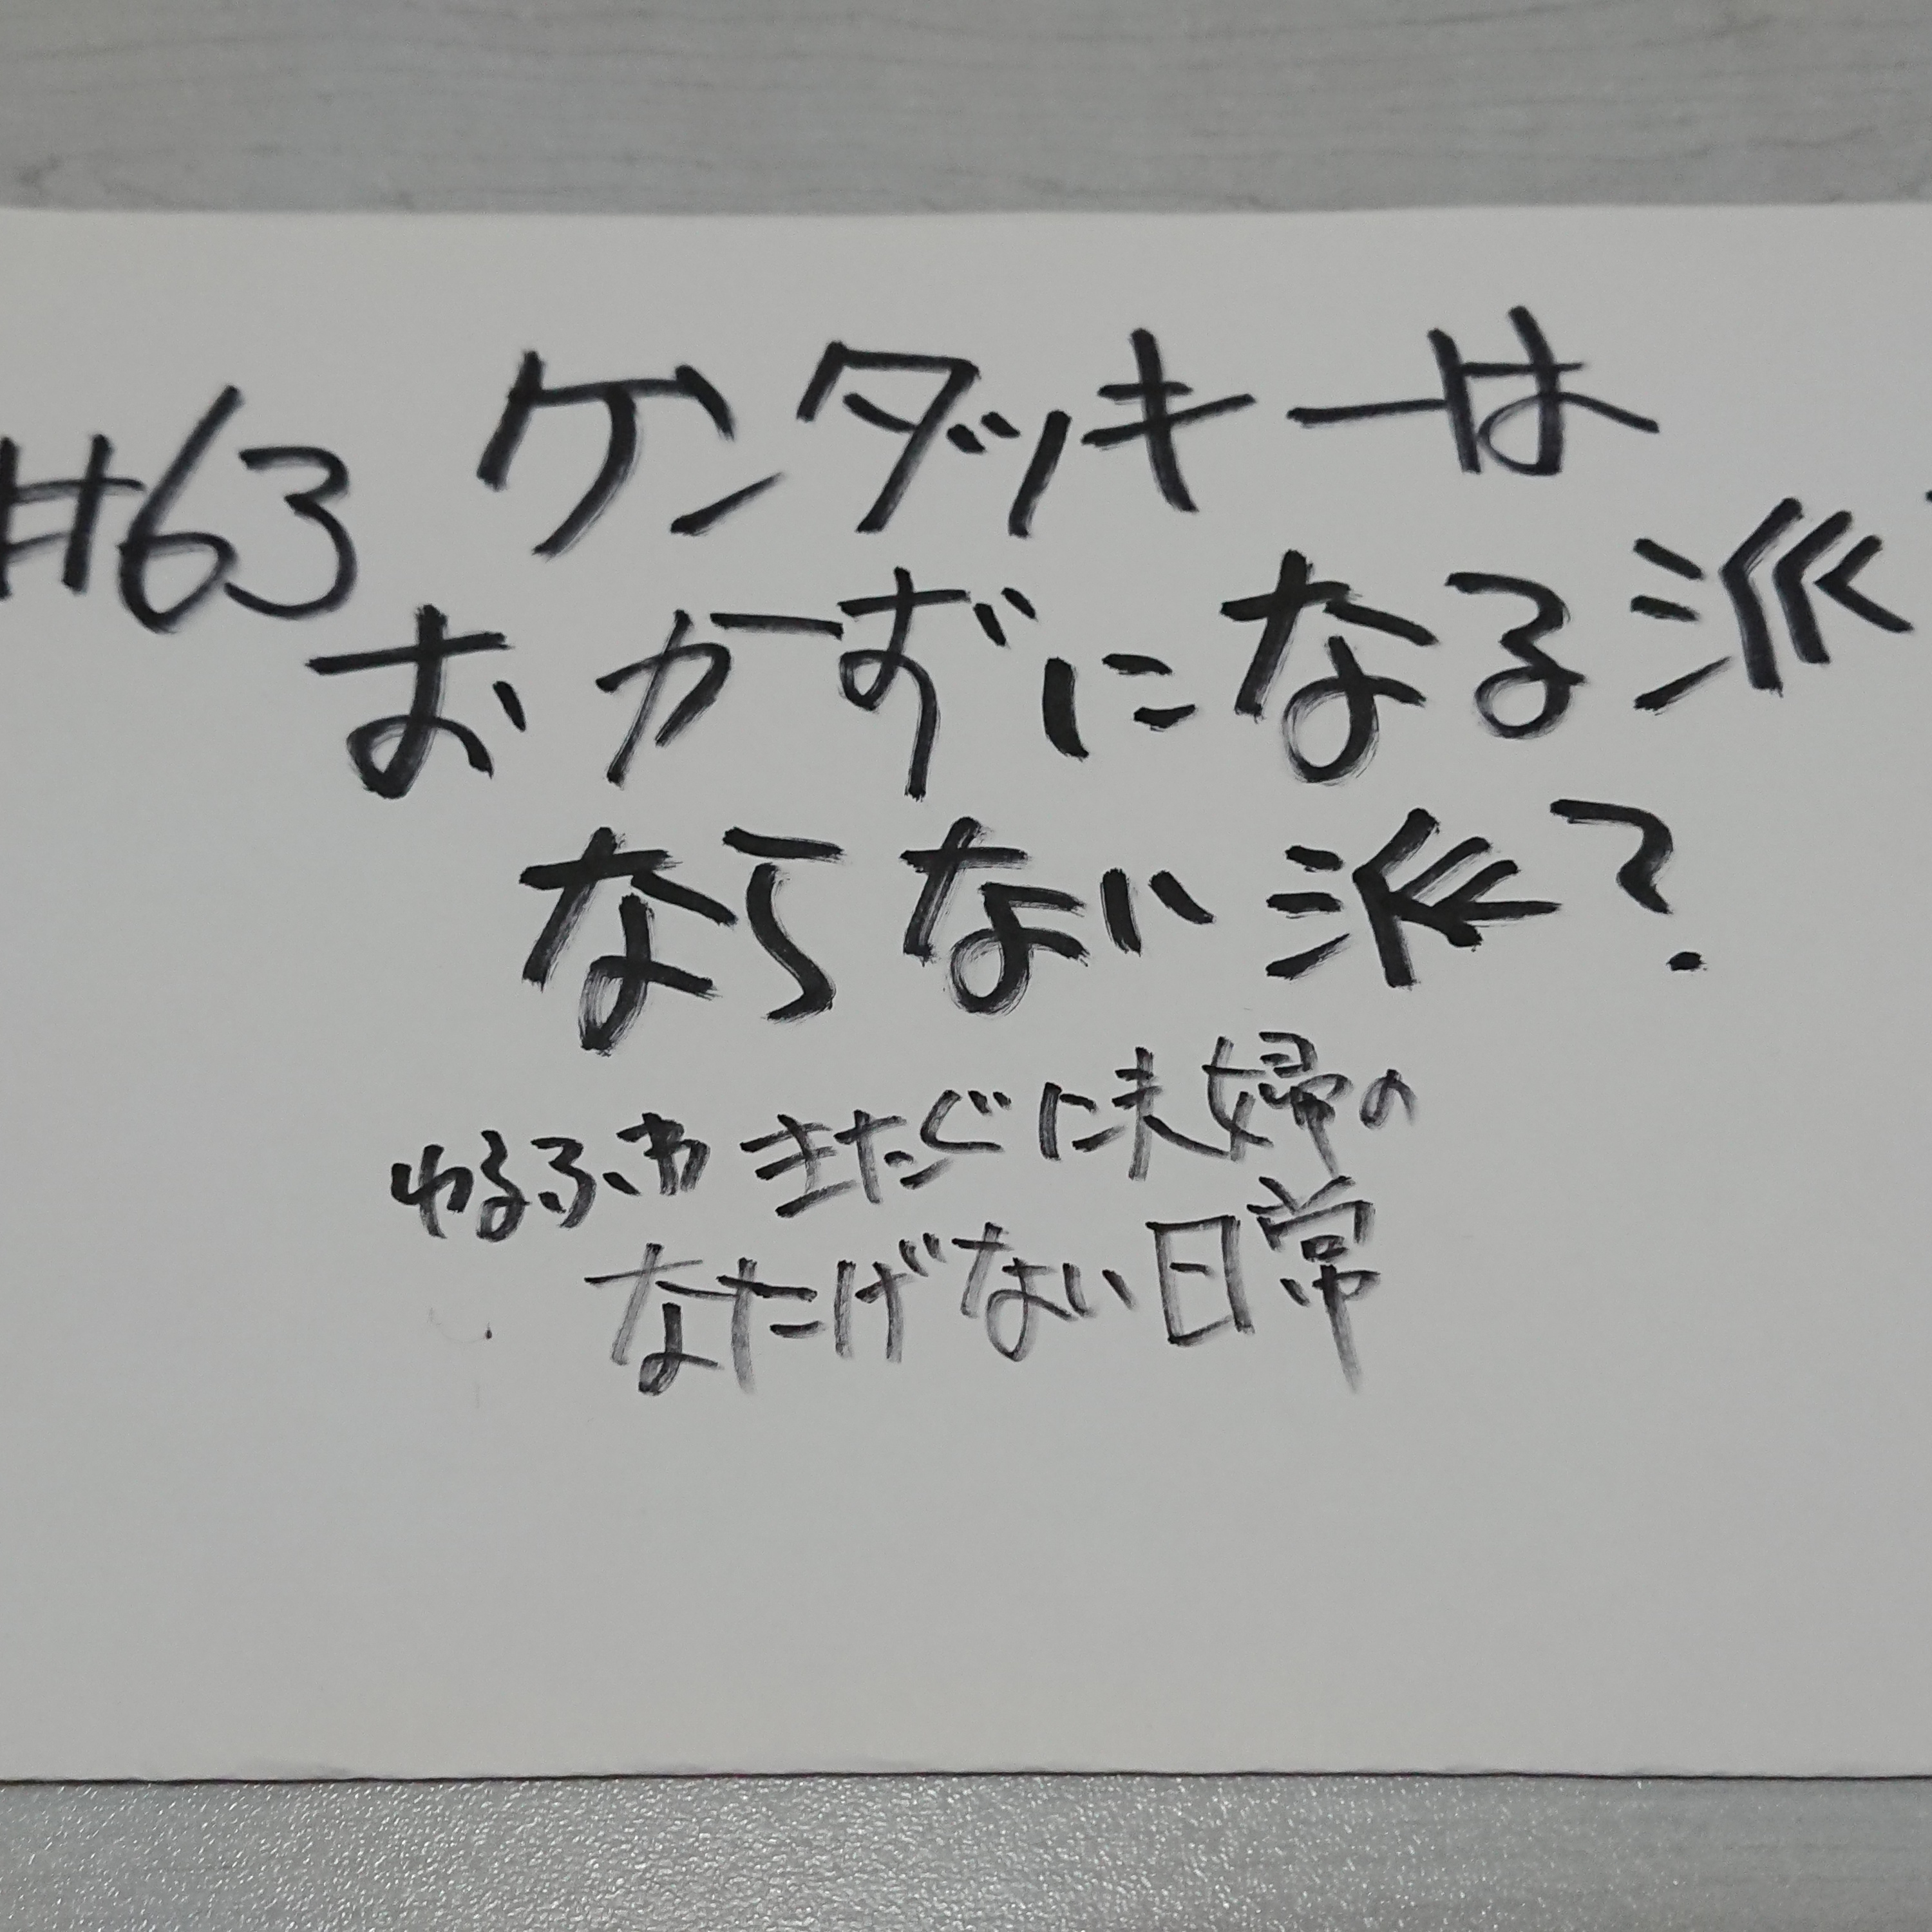 #63 ケンタッキーは
おかずになる派?
ならない派?
ゆるふわ きたぐに夫婦の
なにげない日常